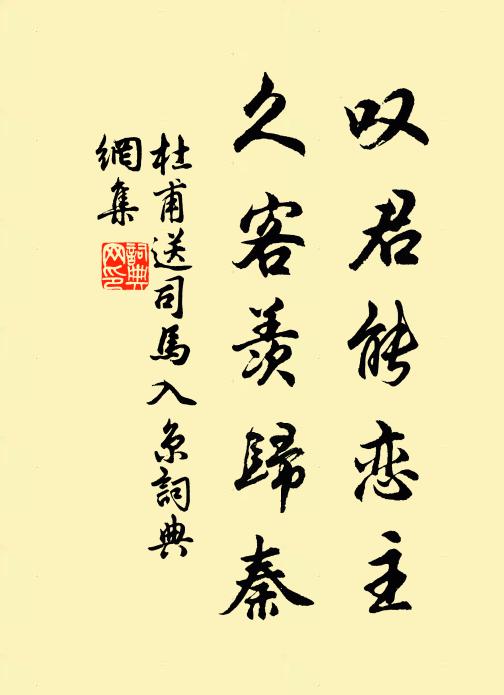 叹君能恋主
久客羡归秦
杜甫送司馬入京詞典
網集
詞典
网印